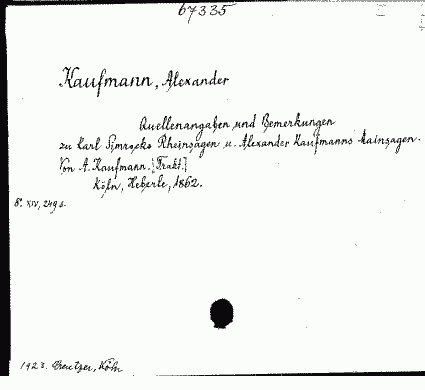 67335
Kaufmann, Alexander
Quellenangaben und Bemerkungen
zu Karl Simrocks Rheinsagen u. Alexander Kaufmanns Mainsagen.
Von A. Kaufmann.
Köln, Heberle, 1862.
8°. XIV, 249 S.
1923. Creutzer, Köln